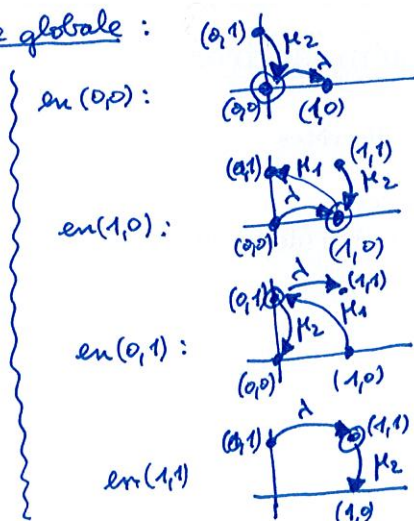 globale :
en (0,0) :
(0,1) μ2 λ
(0,0) (1,0)
en (1,0) :
(0,1) μ1 (1,1)
λ μ2
(0,0) (1,0)
en (0,1) :
(0,1) λ (1,1)
μ2 μ1
(0,0) (1,0)
en (1,1)
(0,1) λ (1,1)
μ2
(1,0)